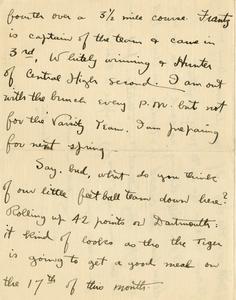 fourth over a 3½ mile course. Frantz
is captain of the team & came in
3rd, Whitely winning & Hunter
of Central High second. I am out
with the bunch every P.M. but not
for the Varsity Team. I am preparing
for next spring.
Say, bud, what do you think
of our little football team down here?
Rolling up 42 points on Dartmouth:
it kind of looks as tho the Tiger
is going to get a good meal on
the 17th of this month.